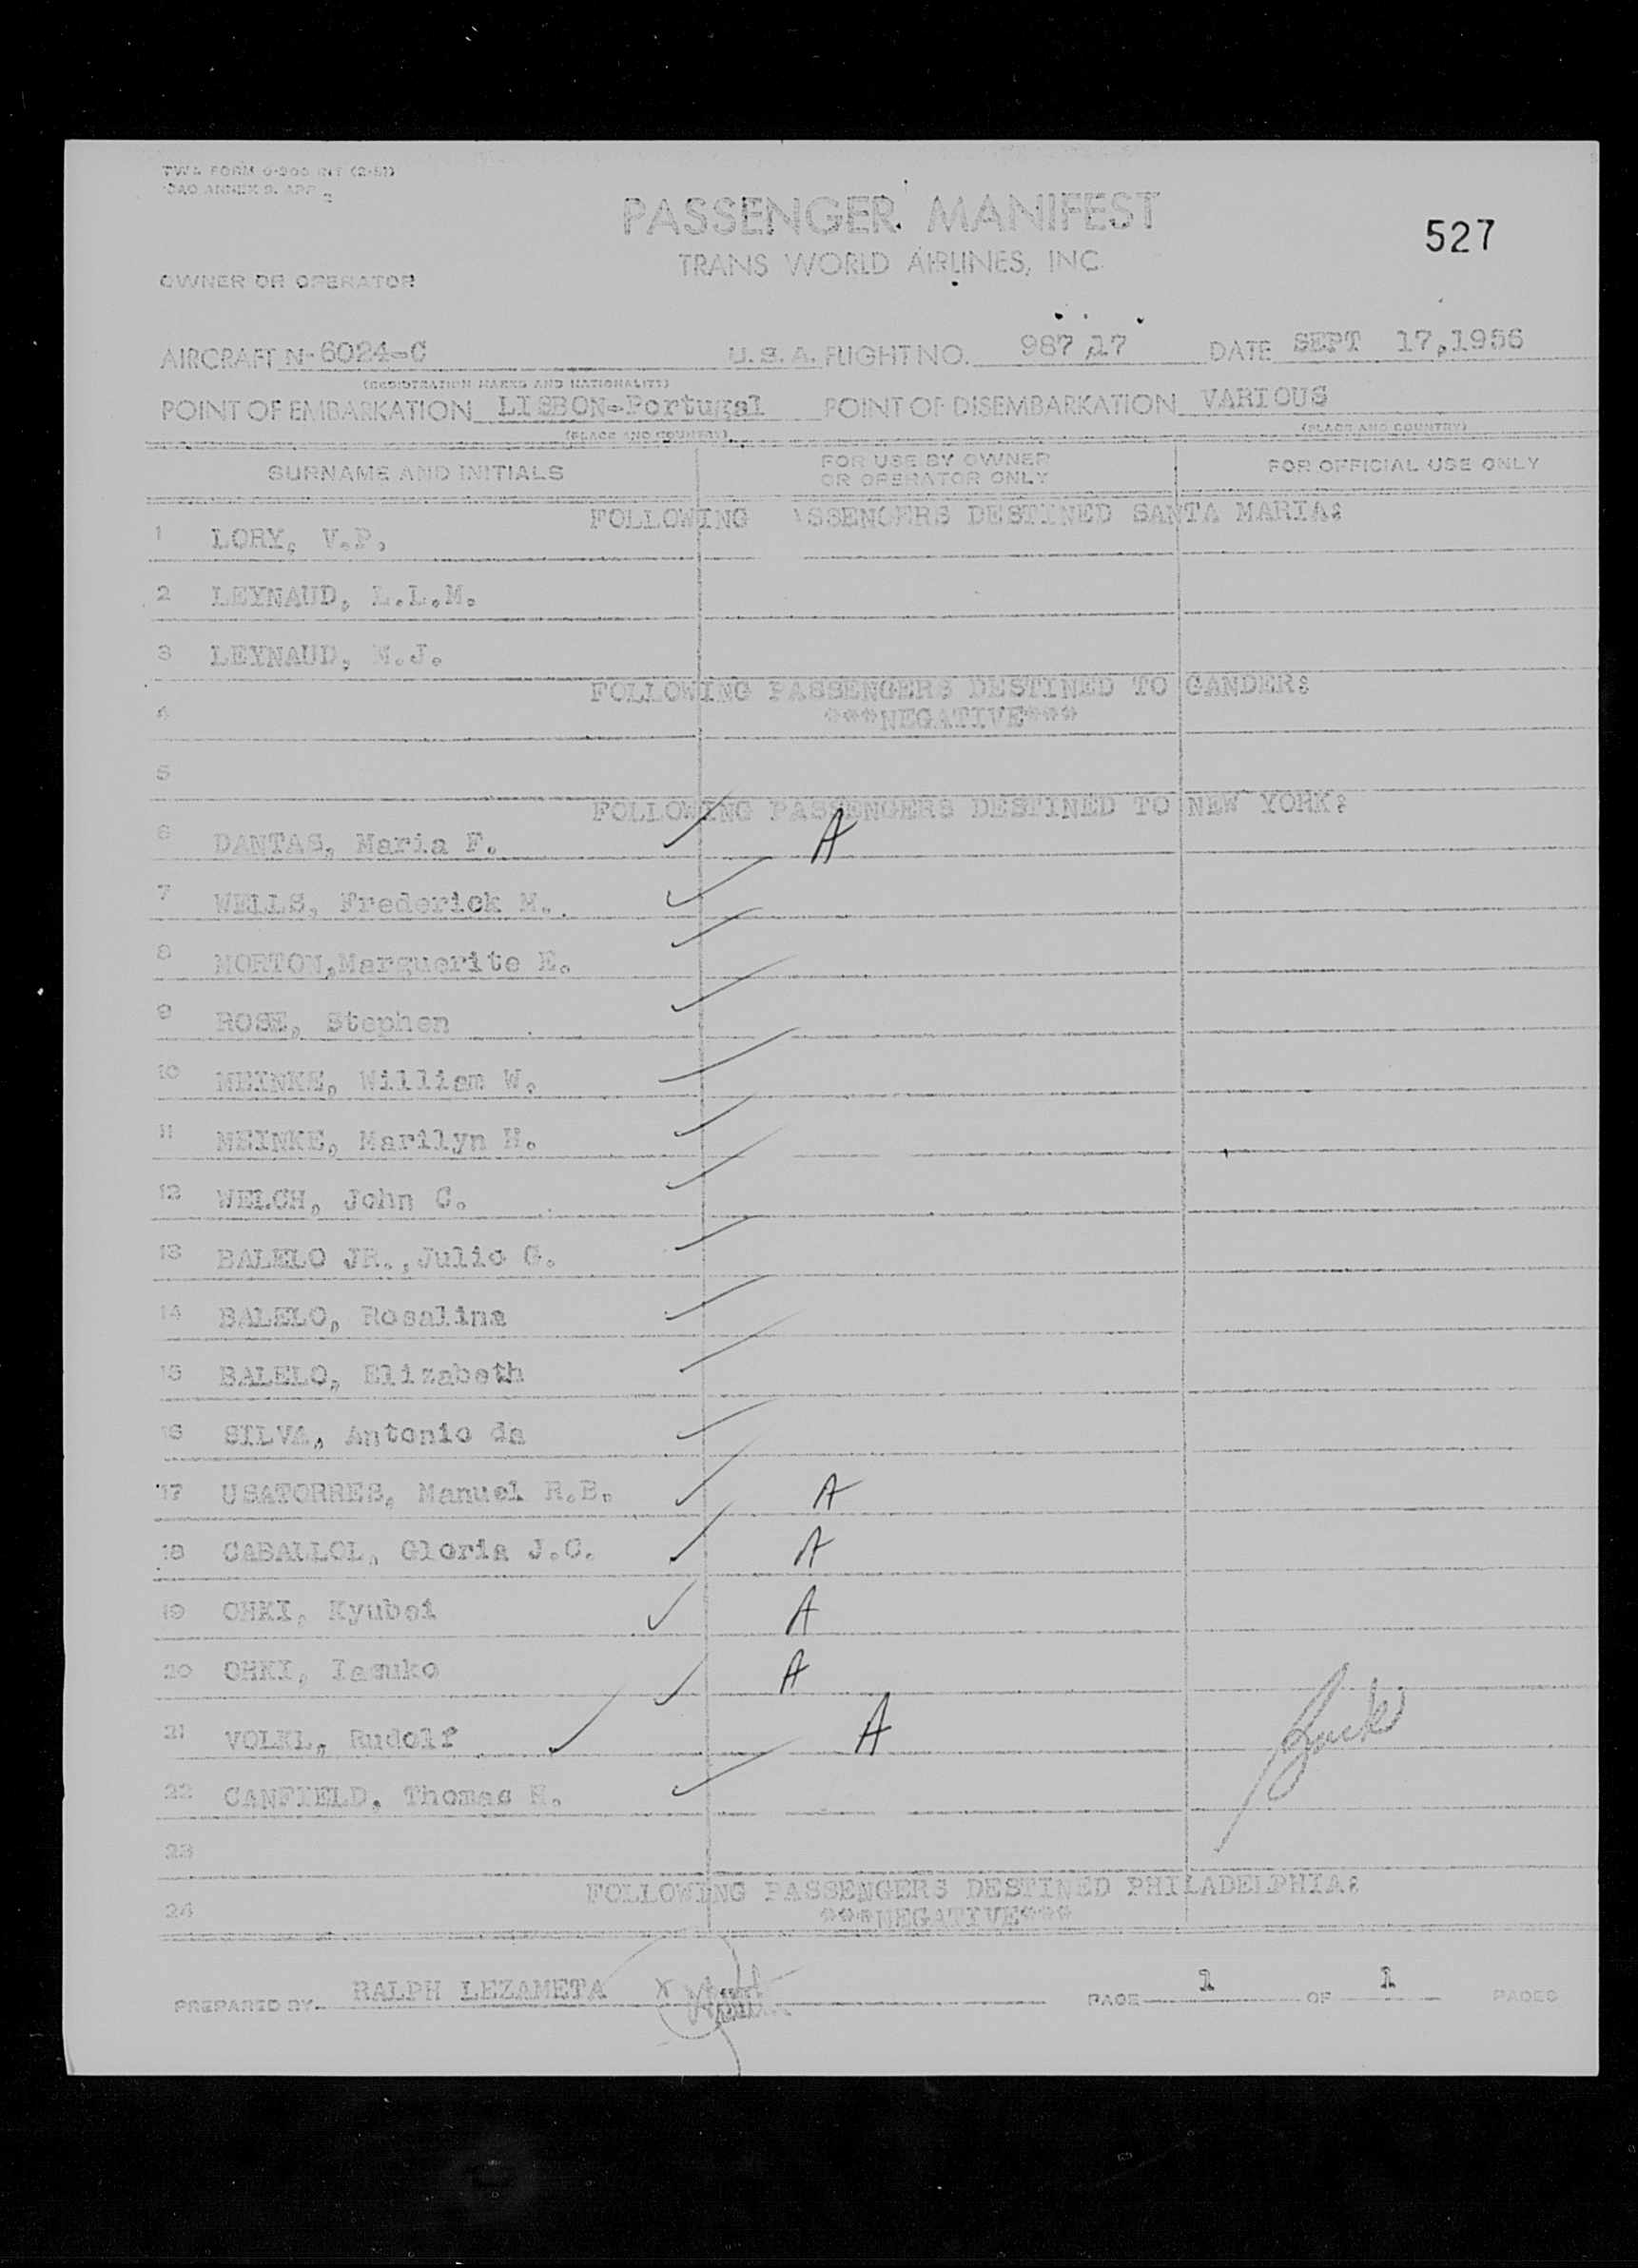 TWA FORM
PASSENGER MANIFEST
527
TRANS WORLD AIRLINES, INC.
OWNER OR OPERATOR
AIRCRAFT N-6024-C U.S.A. FLIGHT NO. 987/17 DATE SEPT 17,1956
(REGISTRATION MARKS AND NATIONALITY)
POINT OF EMBARKATION LISBON-Portugal POINT OF DISEMBARKATION VARIOUS
(PLACE AND COUNTRY) (PLACE AND COUNTRY)
SURNAME AND INITIALS FOR USE BY OWNER OR OPERATOR ONLY FOR OFFICIAL USE ONLY
FOLLOWING PASSENGERS DESTINED SANTA MARIA:
1 LORY, V.P.
2 LEYNAUD, L.L.M.
3 LEYNAUD, M.J.
FOLLOWING PASSENGERS DESTINED TO GANDER:
4 ***NEGATIVE***
5
FOLLOWING PASSENGERS DESTINED TO NEW YORK:
6 DANTAS, Maria F. A
7 WELLS, Frederick M.
8 MORTON,Marguerite E.
9 ROSE, Stephen
10 MEINKE, William W.
11 MEINKE, Marilyn H.
12 WELCH, John C.
13 BALELO JR.,Julio G.
14 BALELO, Rosalina
15 BALELO, Elizabeth
16 SILVA, Antonio da
17 USATORRES, Manuel R.B. A
18 CABALLOL, Gloria J.C. A
19 OHKI, Kyubei A
20 OHKI, Iasuko A
21 VOLKL, Rudolf A
22 CANFIELD, Thomas H.
23
FOLLOWING PASSENGERS DESTINED PHILADELPHIA:
24 ***NEGATIVE***
PREPARED BY RALPH LEZAMETA X PAGE 1 OF 1 PAGES